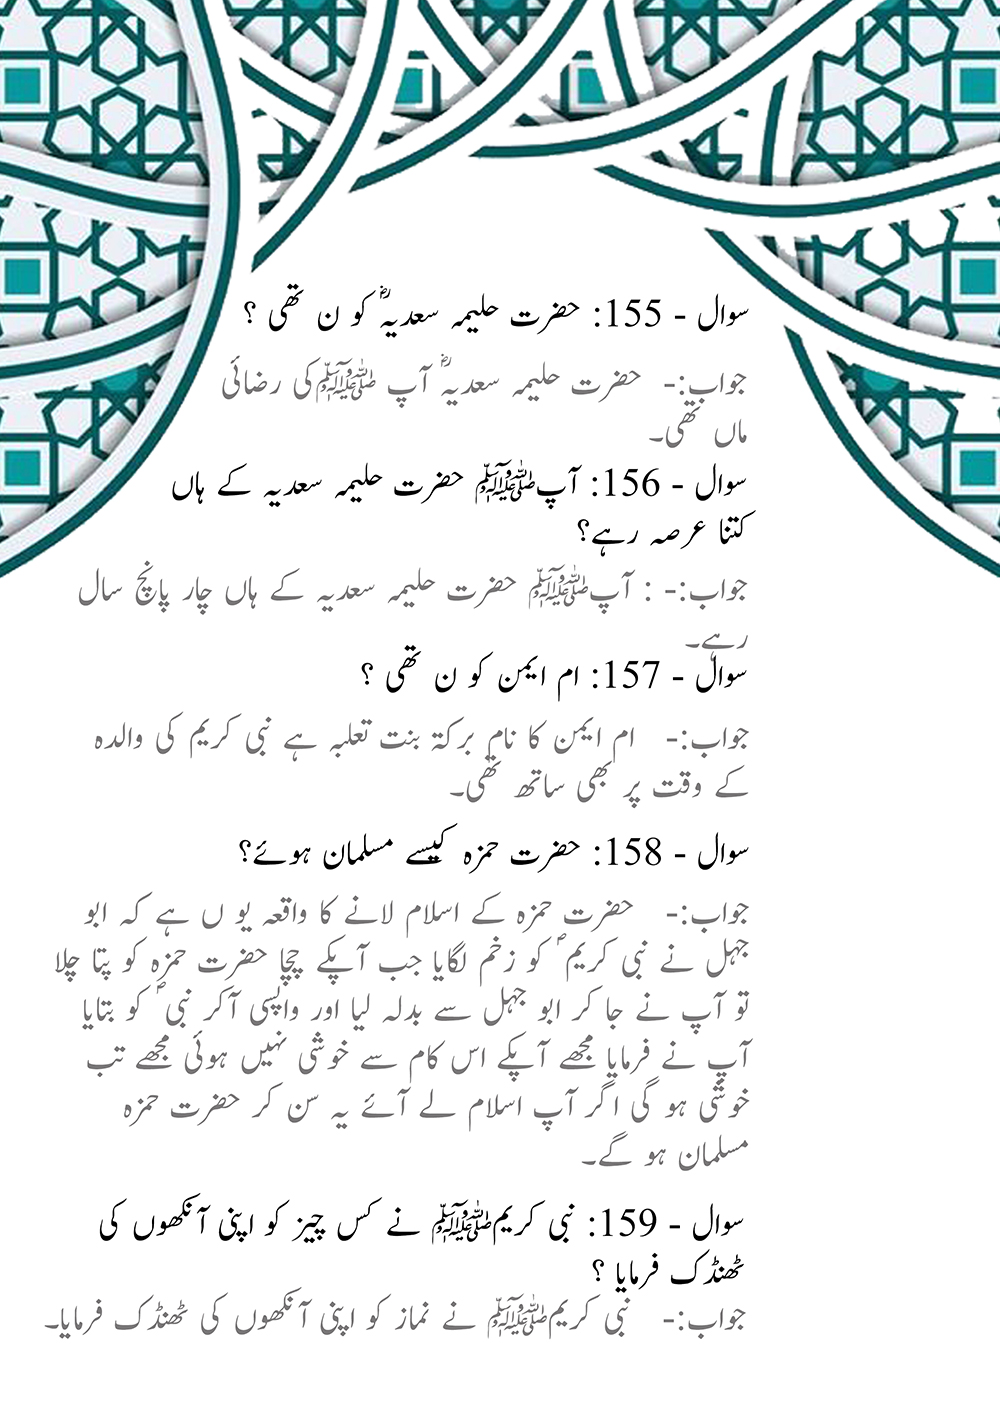 سوال - 155: حضرت حلیمہ سعدیہؓ کو ن تھی ؟
جواب:- حضرت حلیمہ سعدیہؓ آپ ﷺکی رضائی
ماں تھی۔
سوال - 156: آپﷺ حضرت حلیمہ سعدیہ کے ہاں
کتنا عرصہ رہے؟
جواب:- : آپﷺ حضرت حلیمہ سعدیہ کے ہاں چار پانچ سال
رہے۔
سوال - 157: ام ایمن کو ن تھی ؟
جواب:- ام ایمن کا نام برکۃ بنت تعلبہ ہے نبی کریم کی والدہ
کے وقت پر بھی ساتھ تھی۔
سوال - 158: حضرت حمزہ کیسے مسلمان ہوئے؟
جواب:- حضرت حمزہ کے اسلام لانے کا واقعہ یو ں ہے کہ ابو
جہل نے نبی کریم ؐ کو زخم لگایا جب آپکے چچا حضرت حمزہ کو پتا چلا
تو آپ نے جا کر ابو جہل سے بدلہ لیا اور واپسی آکر نبی ؐ کو بتایا
آپ نے فرمایا مجھے آپکے اس کام سے خوشی نہیں ہوئی مجھے تب
خوشی ہو گی اگر آپ اسلام لے آئے یہ سن کر حضرت حمزہ
مسلمان ہو گے۔
سوال - 159: نبی کریمﷺ نے کس چیز کو اپنی آنکھوں کی
ٹھنڈک فرمایا ؟
جواب:- نبی کریمﷺ نے نماز کو اپنی آنکھوں کی ٹھنڈک فرمایا۔